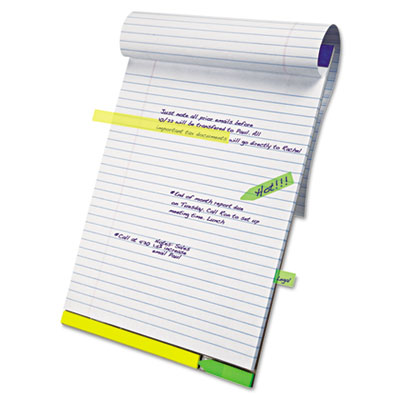 Just note all price emails before
10/22 will be transfered to Paul. All
important tax documents will go directly to Rachel
Hot!!!
*End of month report due
on Tuesday. Call Ron to set up
meeting time. Lunch
*Call at 4:30
Sales
increase
email Paul
Legal